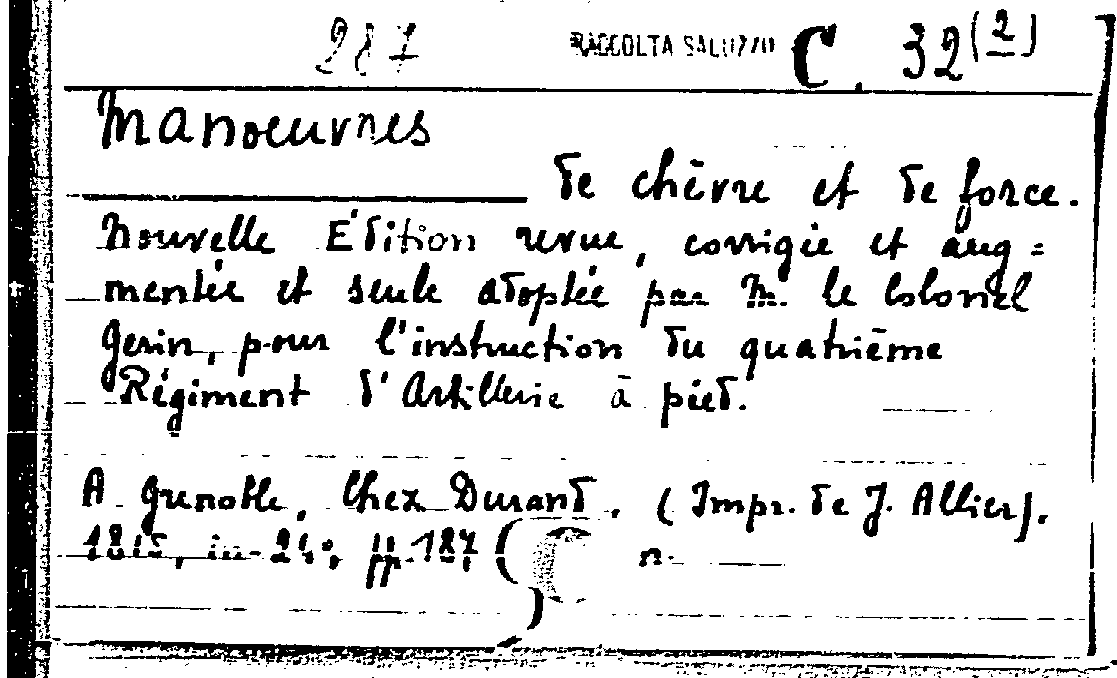 287 RACCOLTA SALUZZO C. 32 (2)
Manoeuvres
de chèvre et de force.
Nouvelle Edition revue, corrigée et aug=
mentée et seule adoptée par M. le Colonel
Gerin, pour l'instruction du quatrième
Régiment d'Artillerie à pied.
A Grenoble, Chez Durand. (Impr. de J. Allier).
1815, in-24°, pp. 187